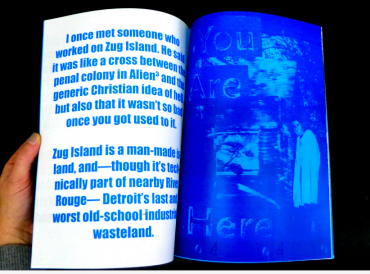 I once met someone who
worked on Zug Island. He said
it was like a cross between the
penal colony in Alien³ and the
generic Christian idea of hell
but also that it wasn't so bad
once you got used to it.
Zug Island is a man-made is-
land, and—though it's tech-
nically part of nearby River
Rouge— Detroit's last and
worst old-school industrial
wasteland.
You
Are
Here